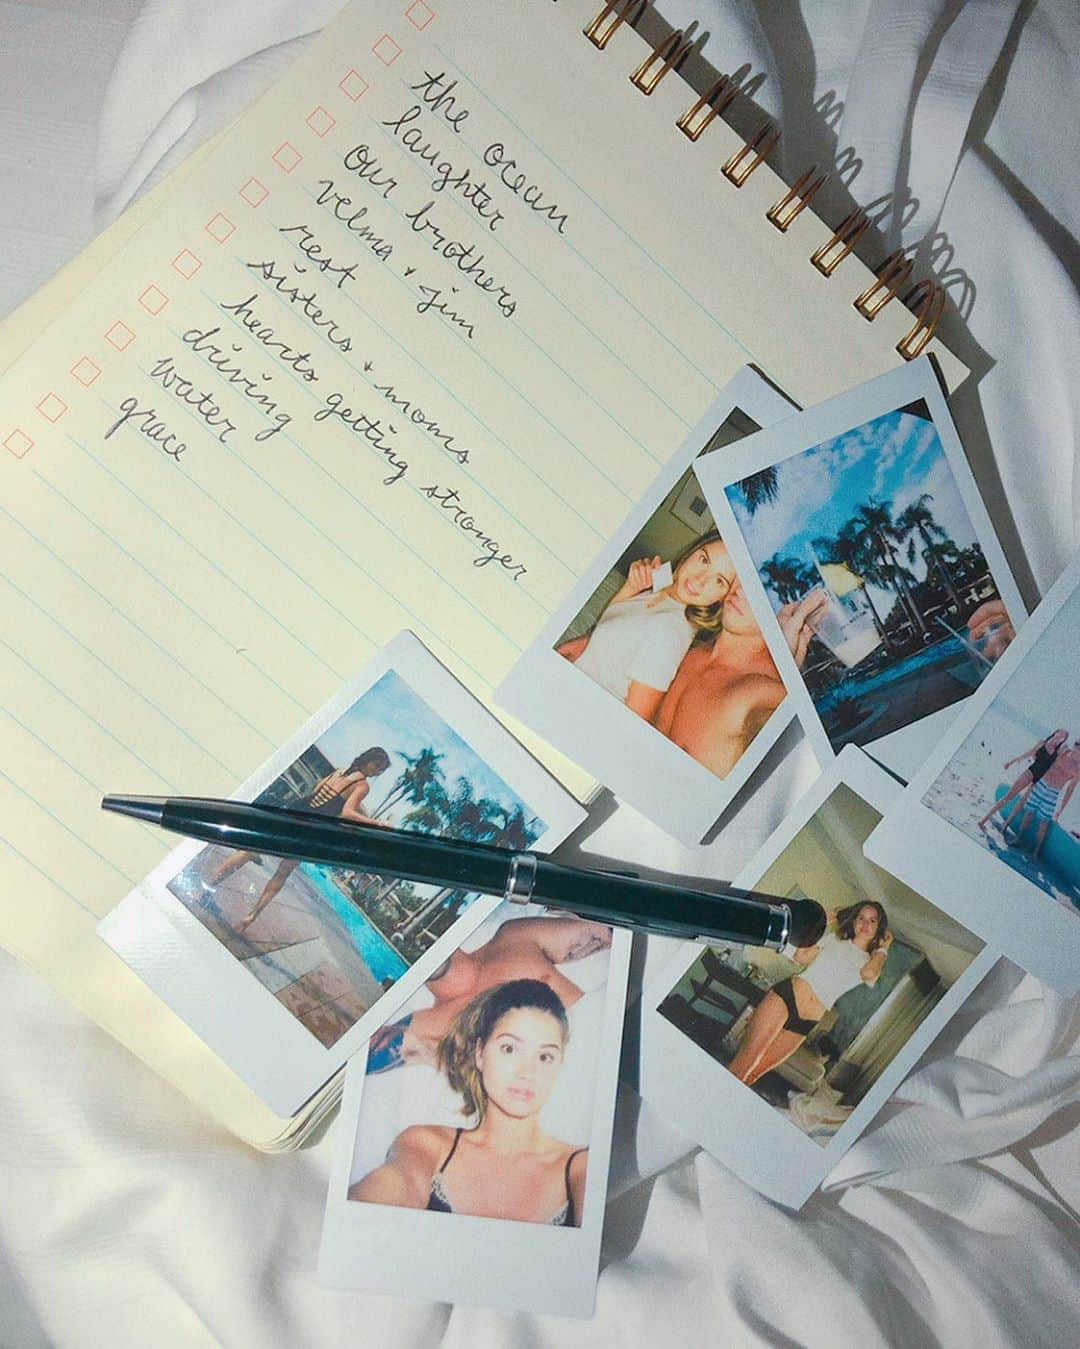 the ocean
laughter
our brothers
velma + jim
rest
sisters + moms
hearts getting stronger
driving
water
grace